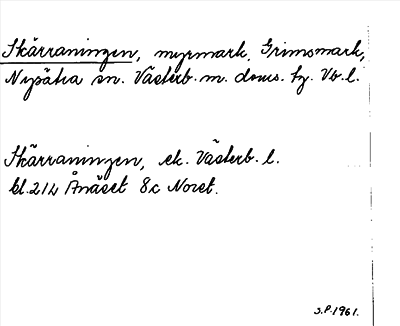 Skärraningen, myrmark, Grimsmark,
Nysätra sn. Västerb. m. doms. tg. Vb. l.
Skärraningen, ek. Västerb. l.
bl. 212 Ånäset 8c Noret.
S.P. 1961.